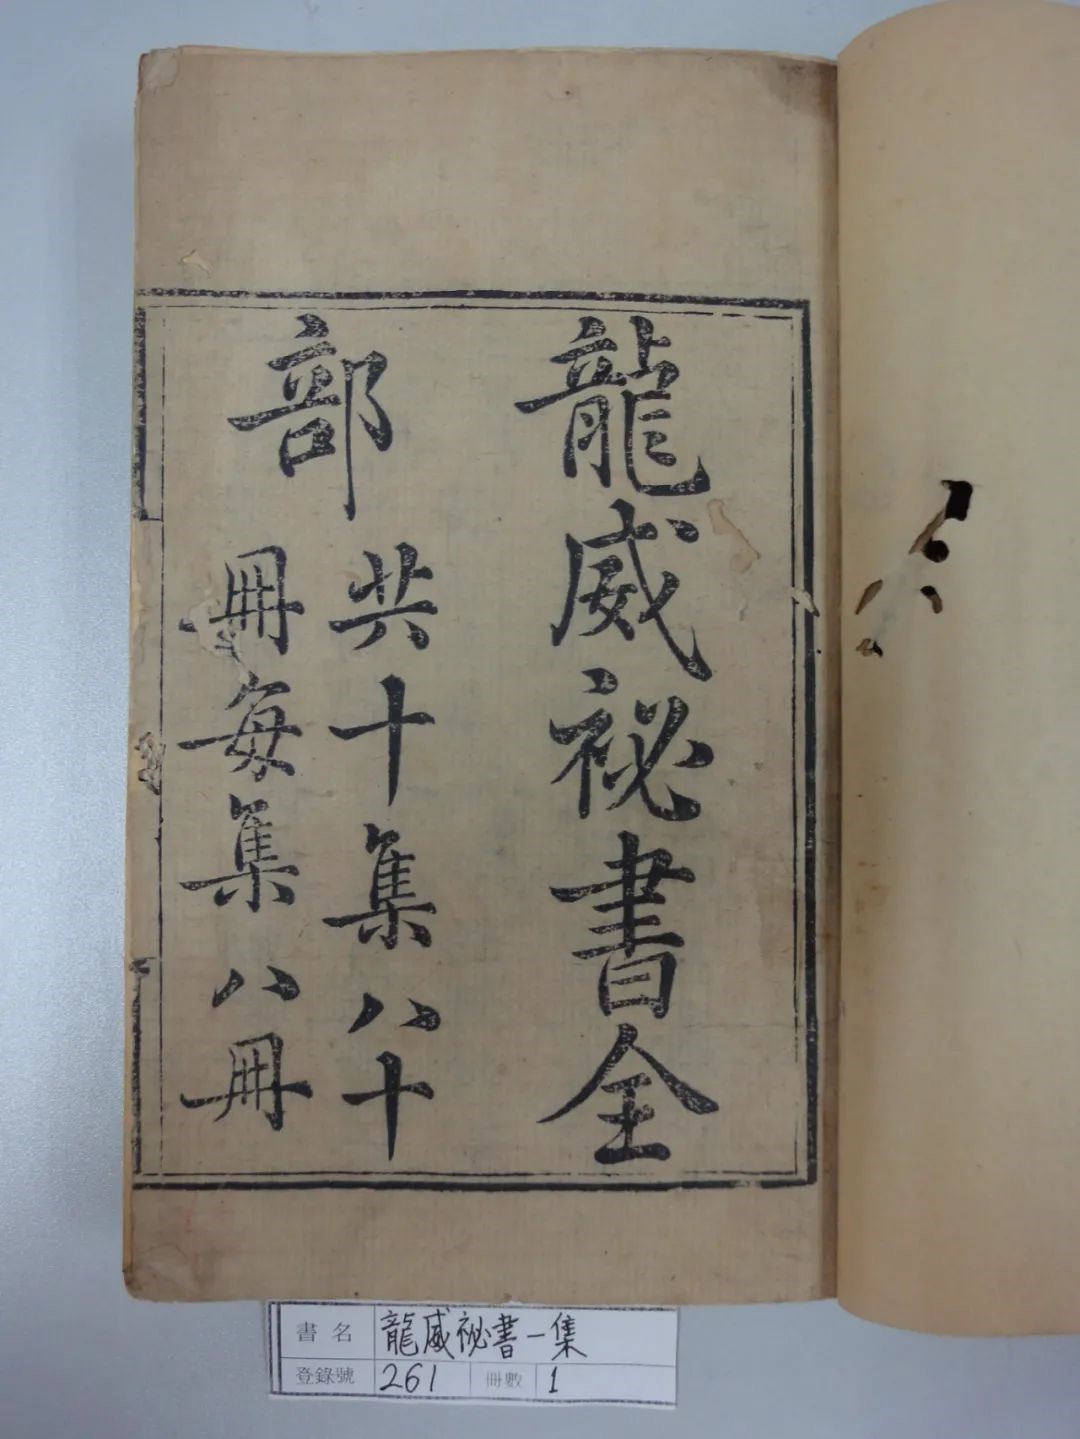 龍威祕書全
部
共十集八十
冊每集八冊
書名 龍威祕書一集
登錄號 261 冊數 1